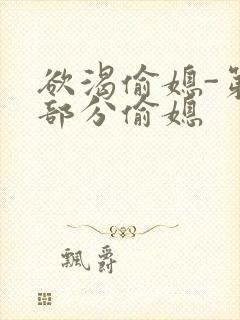 欲渴偷媳-第
部分偷媳
飘爵